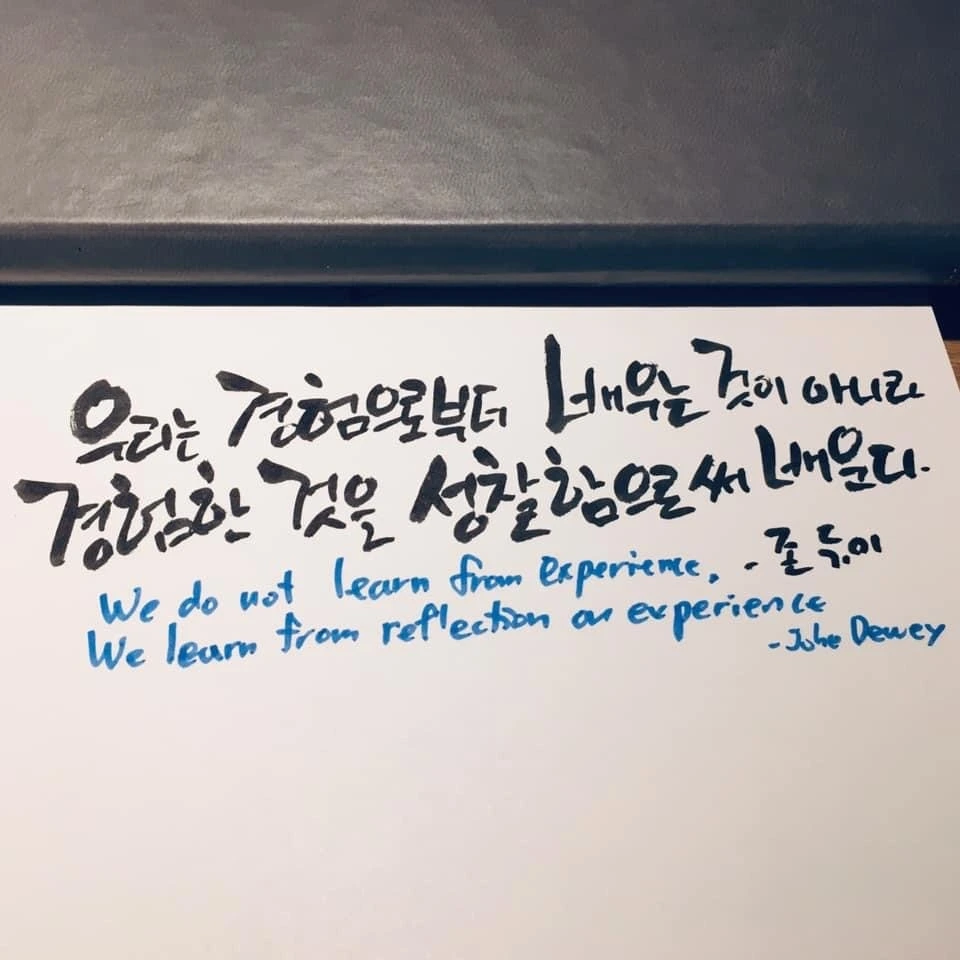 우리는 경험으로부터 배우는 것이 아니라
경험한 것을 성찰함으로써 배운다.
- 존 듀이
We do not learn from experience.
We learn from reflection on experience
- John Dewey